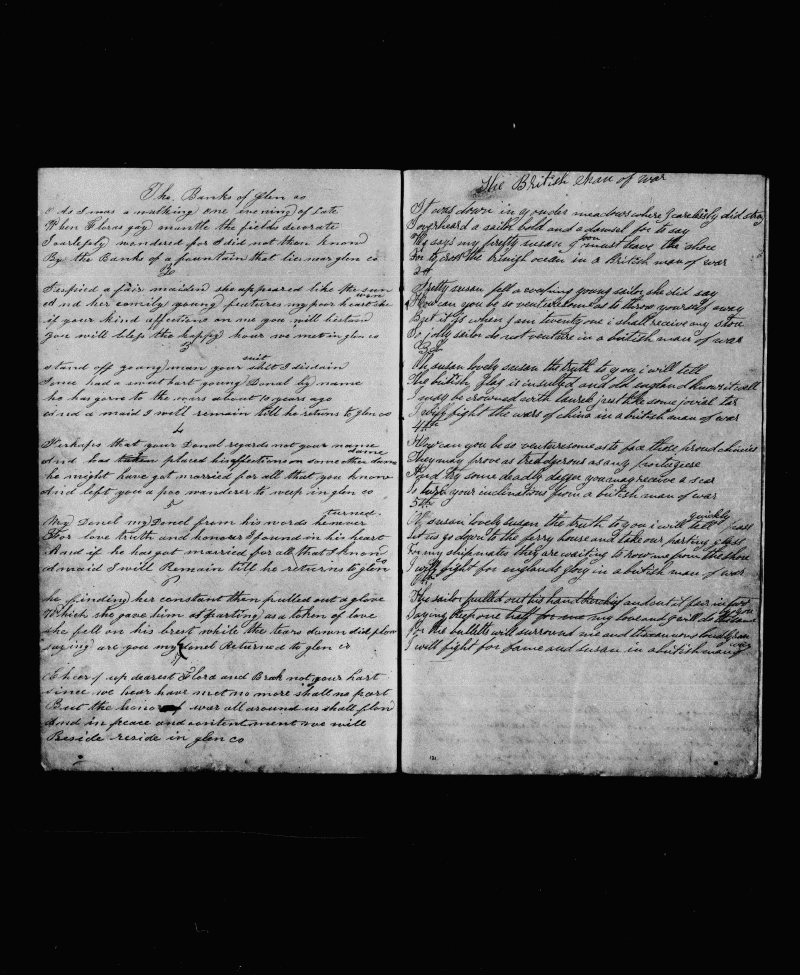 The Banks of Glen co
As I was a walking one evening of Late
When Floras gay mantle the fields decorate
I carlesly wondered for I did not then know
By the Banks of a fountain that lies near glen co
2
I espied a fair maiden she appeared like the sun
And her comily young features my poor heart she won
if your kind affections on me you will bestand
you will bless the happy hour we met in glen co
3
stand off young man your shit suit I disdain
I once had a smart hart young Donal by name
he has gone to the wars about 10 years ago
And a maid I will remain till he returns to glen co
4
Perhaps that your Donal regards not your name
And has taken placed his affections on some other dame
he might have got married for all that you know
And left you a poo wanderer to weep in glen co
5
My Donel my Donel from his words he never turned
For love truth and honor I found in his heart
And if he has got married for all that I know
A maid I will Remain till he returns to glen co
6
he finding her constant then pulled out a glove
Which she gave him at parting as a token of love
she fell on his brest while the tears down did flow
saying are you my Donel Returned to glen co
7
Cheer up dearest Flora and Brak not your hart
since we hear have met no more shall we part
But the honor of war all around us shall
And in peace and contentment we will
Beside reside in glen co
The British Man of war
It was down in yonder meadows where I carelesly did stray
I overheard a sailor bold and a damsel for to say
He says my pretty susan I soon must leave the shore
For to cross the brinigh ocean in a british man of war
2d
Pretty susan fell a weeping young sailor she did say
How can you be so venturesome as to throw yourself away
But it is when I am twenty one i shall receive my store
So jolly sailor do not venture in a british man of war
3d
Oh susan lovely susan the truth to you i will tell
The british flag is insulted and old england knows it well
I may be crowned with laurels just like some jovial tar
I will fight the wars of china in a british man of war
4th
How can you be so venturesome as to face those proud chinies
They may prove as tredgerous as any portugiese
And by some deadly you may receive a scar
So your inclinations from a british man of war
5th
Oh susan lovely susan the truth to you i will tell quickly pass
let us go down to the ferry house and take our parting glass
For my shipmates they are waiting to row me from the shore
I will fight for englands glory in a british man of war
6th
The sailor pulled out his handkerchief and cut it fair in
Saying keep one half for me my love and I will do the same
For the bulletts will surround me and thunderous loudly roar
I will fight for fame and susan in a british man of war